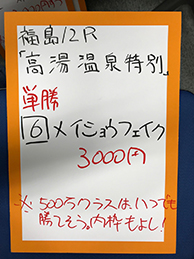 福島12R
「高湯温泉特別」
単勝
6 メイショウフェイク
3000円
※500万クラスは、いつでも
勝てそう。内枠もよし!